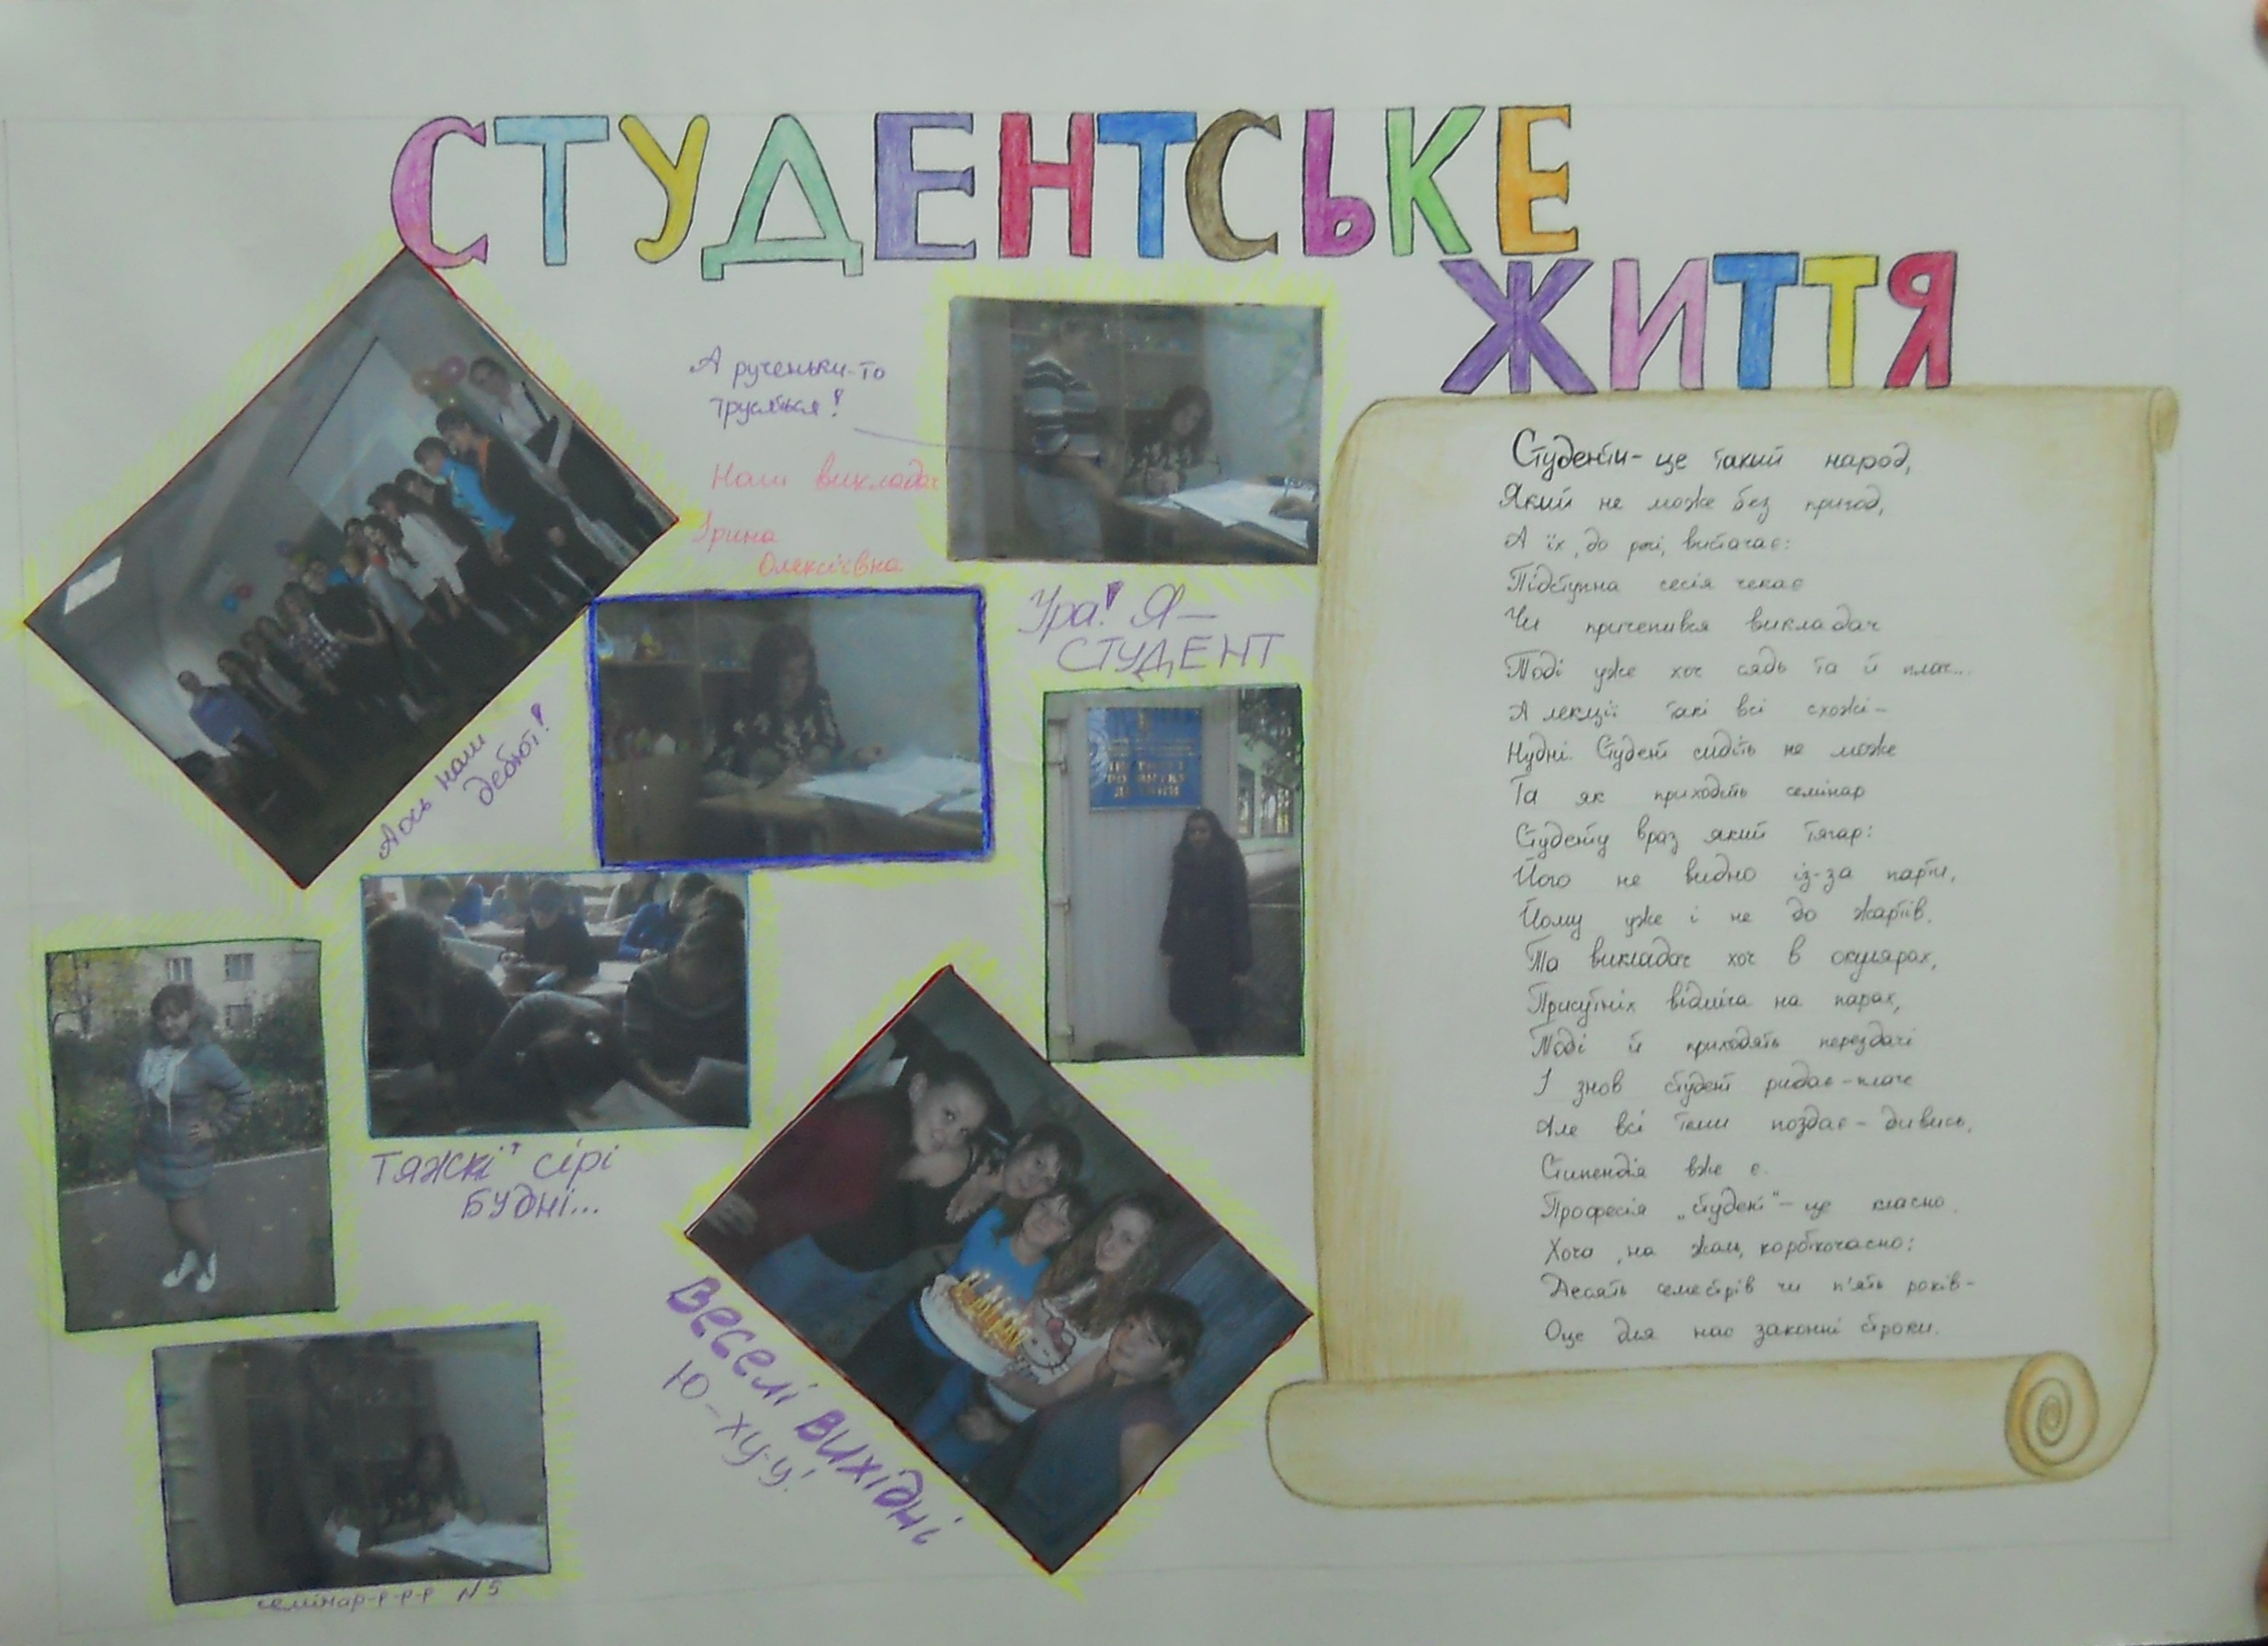 СТУДЕНТСЬКЕ
ЖИТТЯ
А рученьки-то
трусяться!
Наш викладач
Ірина
Олексіївна
Ура! Я —
СТУДЕНТ
А ось наш
дебют!
ІНСТИТУТ
РОЗВИТКУ
ДИТИНИ
ТЯЖКІ сірі
БУДНІ...
Веселі вихідні
Ю-ху-у!
семінар-р-р-р №5
Студенти - це такий народ,
Який не може без пригод,
А їх, до речі, вистачає:
Підступна сесія чекає
Чи причепився викладач
Тоді уже хоч сядь та й плач...
А лекції такі всі схожі -
Нудні. Студент сидіть не може
Та як приходить семінар
Студенту враз який тягар:
Його не видно із-за парти,
Йому уже і не до жартів.
Та викладач хоч в окулярах,
Присутніх відміча на парах,
Тоді й приходять перездачі
І знов студент ридає-плаче
Але всі теми поздає - дивись,
Стипендія вже є.
Професія „студент" - це класно.
Хоча, на жаль, короткочасно:
Десять семестрів чи п'ять років -
Оце для нас законні строки.